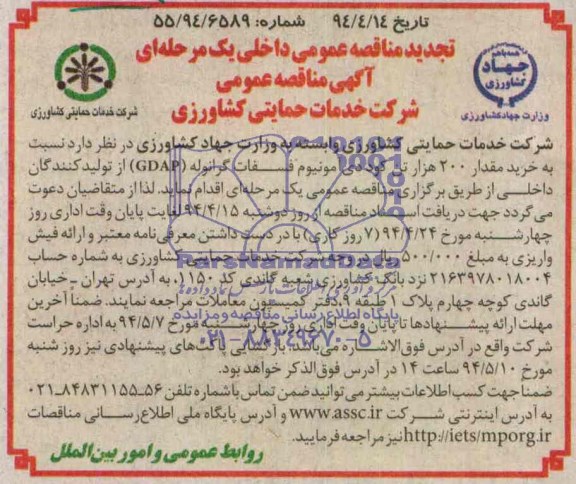 تاریخ ۹۴/۴/۱۴ شماره: ۵۵/۹۴/۶۵۸۹
تجدید مناقصه عمومی داخلی یک مرحله‌ای
آگهی مناقصه عمومی
شرکت خدمات حمایتی کشاورزی
همه با هم
جهاد
کشاورزی
وزارت جهاد کشاورزی
شرکت خدمات حمایتی کشاورزی
شرکت خدمات حمایتی کشاورزی وابسته به وزارت جهاد کشاورزی در نظر دارد نسبت
به خرید مقدار ۲۰۰ هزار تن کود دی آمونیوم فسفات گرانوله (GDAP) از تولیدکنندگان
داخلی از طریق برگزاری مناقصه عمومی یک مرحله‌ای اقدام نماید. لذا از متقاضیان دعوت
می‌گردد جهت دریافت اسناد مناقصه از روز دوشنبه ۹۴/۴/۱۵ لغایت پایان وقت اداری روز
چهارشنبه مورخ ۹۴/۴/۲۴ (۷ روز کاری) با در دست داشتن معرفی‌نامه معتبر و ارائه فیش
واریزی به مبلغ ۵۰۰/۰۰۰ ریال در وجه شرکت خدمات حمایتی کشاورزی به شماره حساب
۲۱۶۳۹۷۸۰۱۸۰۰۴ نزد بانک کشاورزی شعبه گاندی کد ۱۱۵۰، به آدرس تهران - خیابان
گاندی کوچه چهارم پلاک ۱ طبقه ۹ دفتر کمیسیون معاملات مراجعه نمایند. ضمناً آخرین
مهلت ارائه پیشنهادها تا پایان وقت اداری روز چهارشنبه مورخ ۹۴/۵/۷ به اداره حراست
شرکت واقع در آدرس فوق‌الاشاره می‌باشد، بازگشایی پاکت‌های پیشنهادی نیز روز شنبه
مورخ ۹۴/۵/۱۰ ساعت ۱۴ در آدرس فوق‌الذکر خواهد بود.
ضمنا جهت کسب اطلاعات بیشتر می‌توانید ضمن تماس با شماره تلفن ۵۶-۸۴۸۳۱۱۵۵-۰۲۱
به آدرس اینترنتی شرکت www.assc.ir و آدرس پایگاه ملی اطلاع‌رسانی مناقصات
http://iets/mporg.ir نیز مراجعه فرمایید.
روابط عمومی و امور بین‌الملل
ParsNamadData
پایگاه اطلاع رسانی مناقصه و مزایده
۰۲۱-۸۸۳۴۹۶۷۰-۵